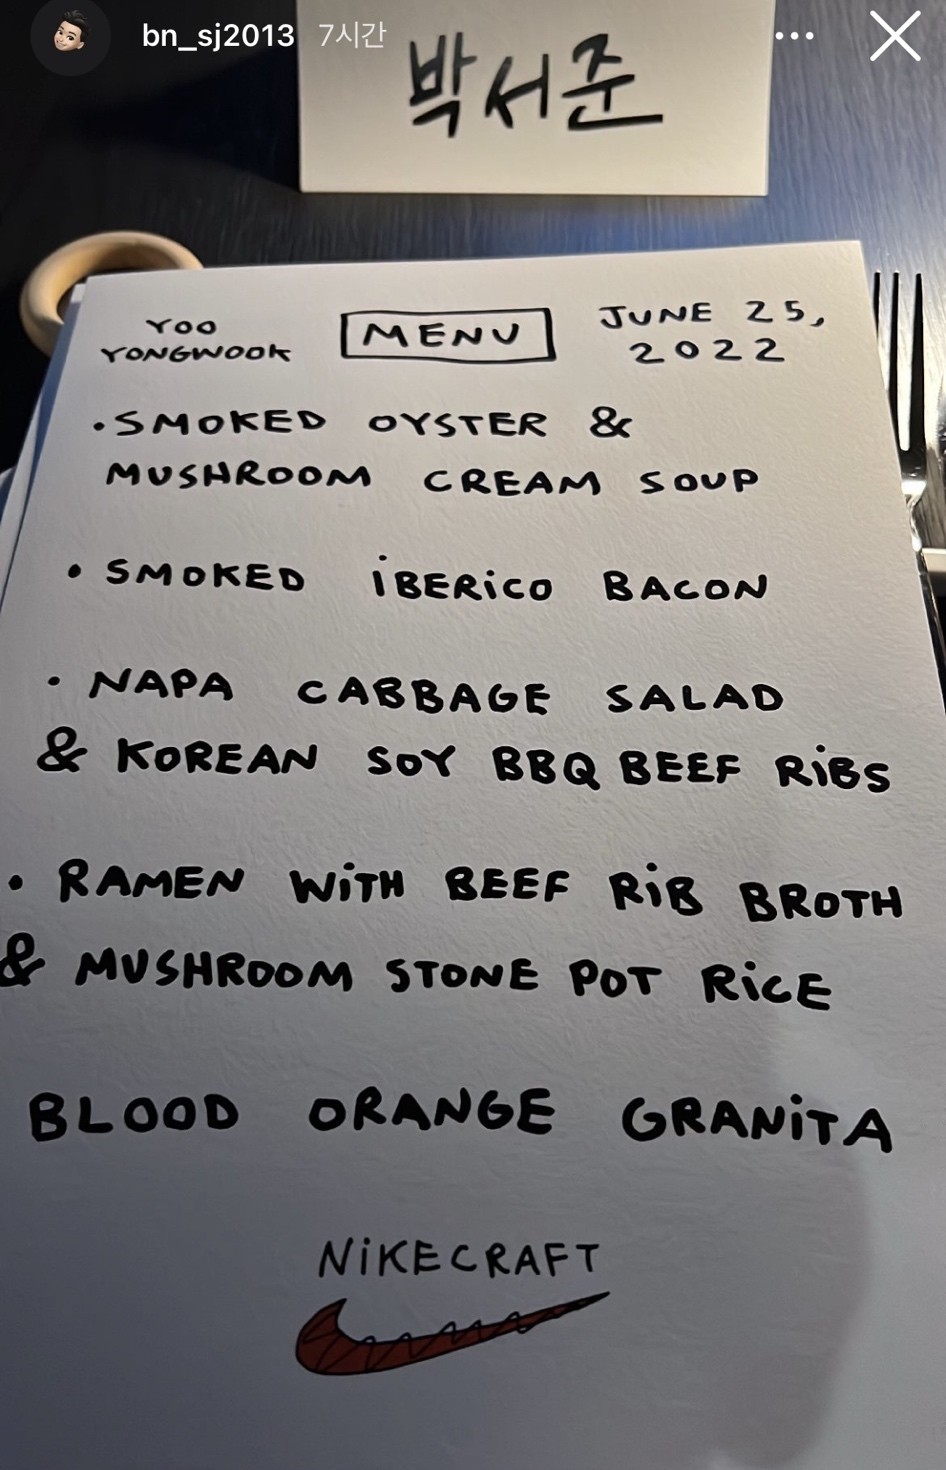 bn_sj2013 7시간
박서준
YOO
YONGWOOK
MENU
JUNE 25,
2022
• SMOKED OYSTER &
MUSHROOM CREAM SOUP
• SMOKED IBERICO BACON
• NAPA CABBAGE SALAD
& KOREAN SOY BBQ BEEF RIBS
• RAMEN WITH BEEF RIB BROTH
& MUSHROOM STONE POT RICE
BLOOD ORANGE GRANITA
NIKECRAFT